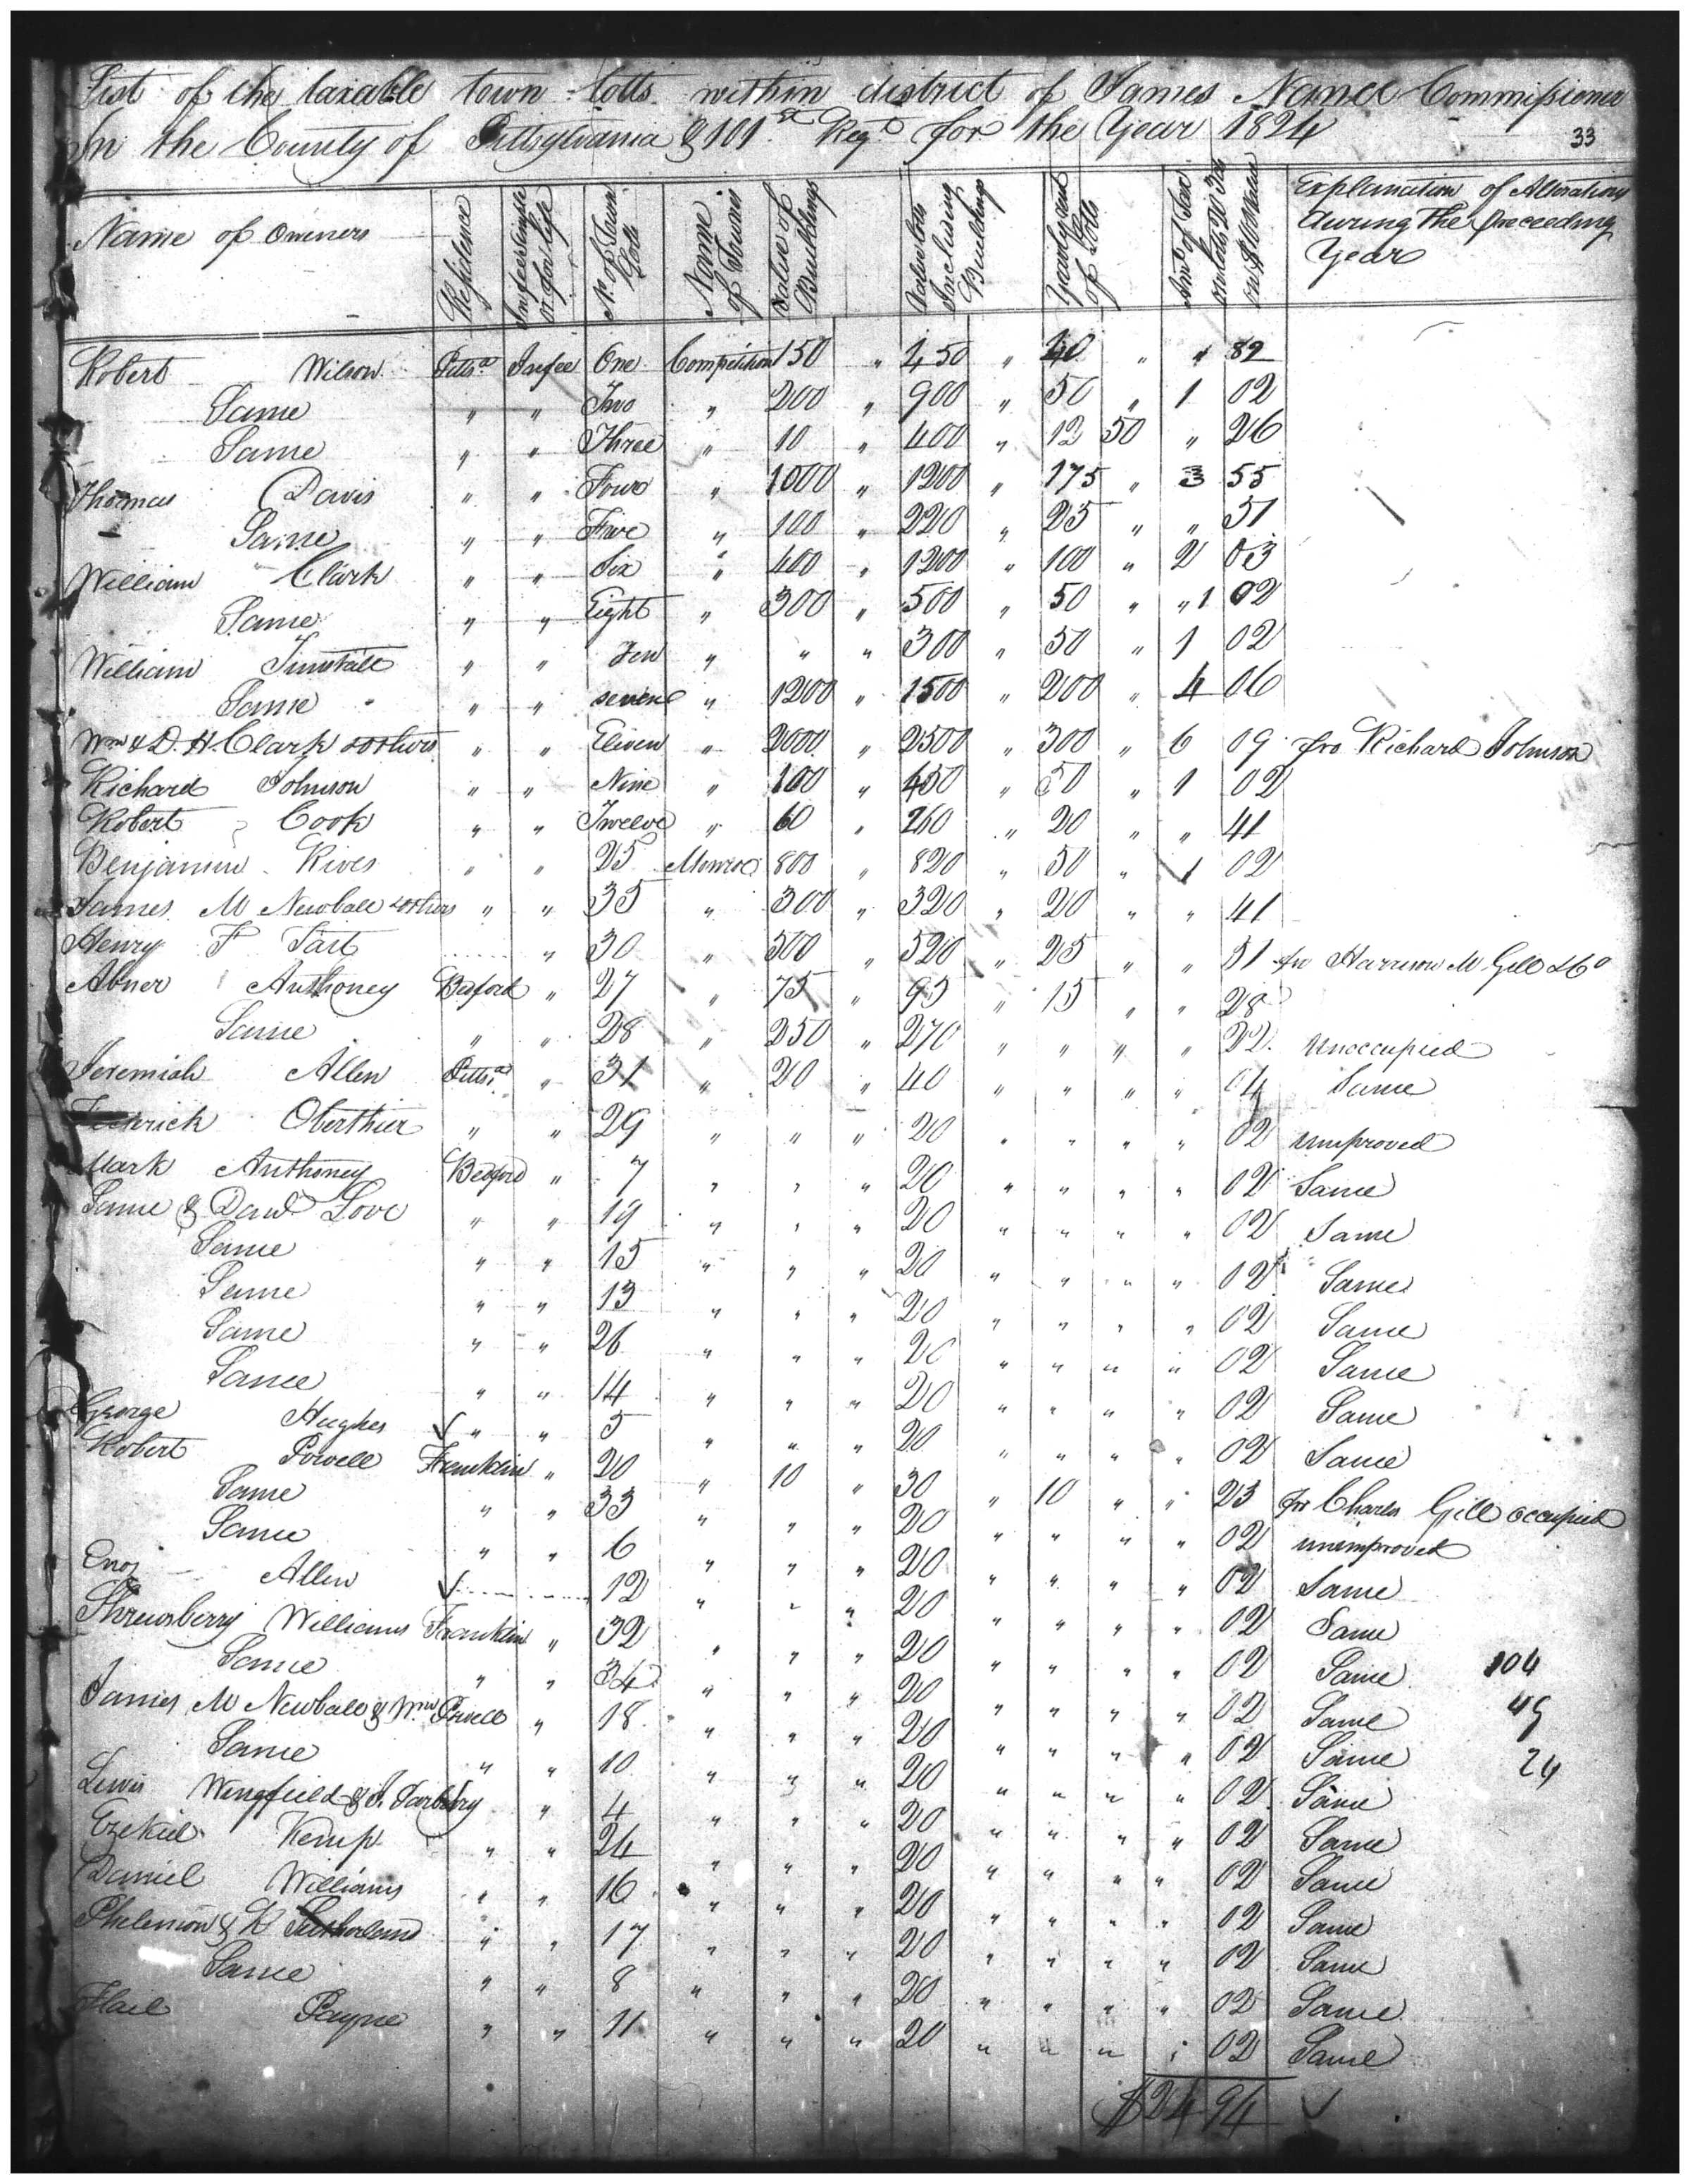 List of the taxable town lotts within district of James Nance Commissioner
In the County of Pittsylvania & 101st Regt for the Year 1824
33
Name of Owners Residence In fee simple or for life No of Town Lotts Name of Towns Value of Buildings Value Lotts Inclusing Buildings Yearly rent of Lotts Amt of Tax on lots Explanation of Alterations during the preceeding Year
Robert Wilson Pittsa Infee One Competition 150 " 450 " 40 " " 82
Same " " Two " 200 " 900 " 50 " 1 02
Same " " Three " 10 " 400 " 12 50 " 26
Thomas Davis " " Four " 1000 " 1200 " 175 " 3 55
Same " " Five " 100 " 220 " 25 " " 51
William Clark " " Six " 400 " 1200 " 100 " 2 03
Same " " Eight " 300 " 500 " 50 " " 1 02
William Tunstall " " Ten " " " 300 " 50 " 1 02
Same " " seven " 1200 " 1500 " 200 " 4 06
Wm & D. H Clark & others " " Eleven " 2000 " 2500 " 300 " 6 09 fro Richard Johnson
Richard Johnson " " Nine " 100 " 450 " 50 " 1 02
Robert Cook " " Twelve " 60 " 260 " 20 " " 41
Benjamin Rives " " 25 Monroe 800 " 820 " 50 " 1 02
James M Newball & others " " 35 " 300 " 320 " 20 " " 41
Henry F Tart " 30 " 500 " 520 " 25 " " 51 fro Harrison M Gill & Co
Abner Anthoney Bedford " 27 " 75 " 95 " 15 " " 28
Same " " 28 " 250 " 270 " " " " 22 unoccupied
Jeremiah Allen Pittsa " 31 " 20 " 40 " " " " 04 Same
Oberthier " " 29 " " " 20 " " " " 02 unimproved
Mark Anthoney Bedford " 7 " " " 20 " " " " 02 Same
Same & Davd Love " " 19 " " " 20 " " " " 02 Same
Same " " 15 " " " 20 " " " " 02 Same
Same " " 13 " " " 20 " " " " 02 Same
Same " " 26 " " " 20 " " " " 02 Same
Same " " 14 " " " 20 " " " " 02 Same
George Hughes " " 5 " " " 20 " " " " 02 Same
Robert Powell Franklin " 20 " 10 " 30 " 10 " " 23 for Charles Gill occupied
Same " " 33 " " " 20 " " " " 02 unimproved
Same " " 6 " " " 20 " " " " 02 Same
Enos Allen 12 " " " 20 " " " " 02 Same
Shrewsberry Williams Franklin " 32 " " " 20 " " " " 02 Same 104
Same " " 34 " " " 20 " " " " 02 Same 45
James M Newball & Wm Powell " 18 " " " 20 " " " " 02 Same 24
Same " " 10 " " " 20 " " " " 02 Same
Lewis Wingfield & J. Tarbery " 4 " " " 20 " " " " 02 Same
Ezekiel Kemp " " 24 " " " 20 " " " " 02 Same
Daniel Williams " " 16 " " " 20 " " " " 02 Same
Philemon & K Sutherland " " 17 " " " 20 " " " " 02 Same
Same " " 8 " " " 20 " " " " 02 Same
Hail Payne " " 11 " " " 20 " " " " 02 Same
$24 94